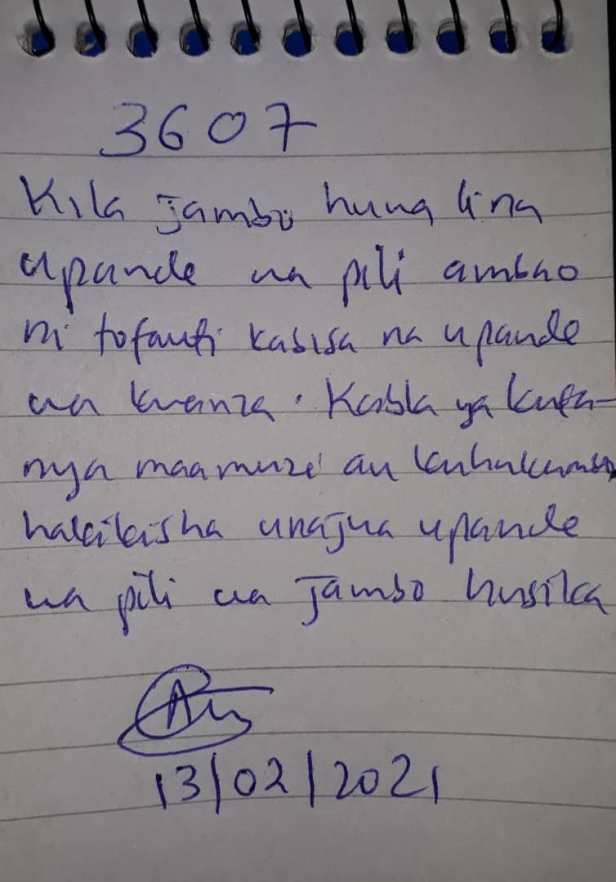 3607
Kila jambo huwa lina
upande wa pili ambao
ni tofauti kabisa na upande
wa kwanza. Kabla ya kufa-
nya maamuzi au kuhukumu
hakikisha unajua upande
wa pili wa jambo husika
13/02/2021